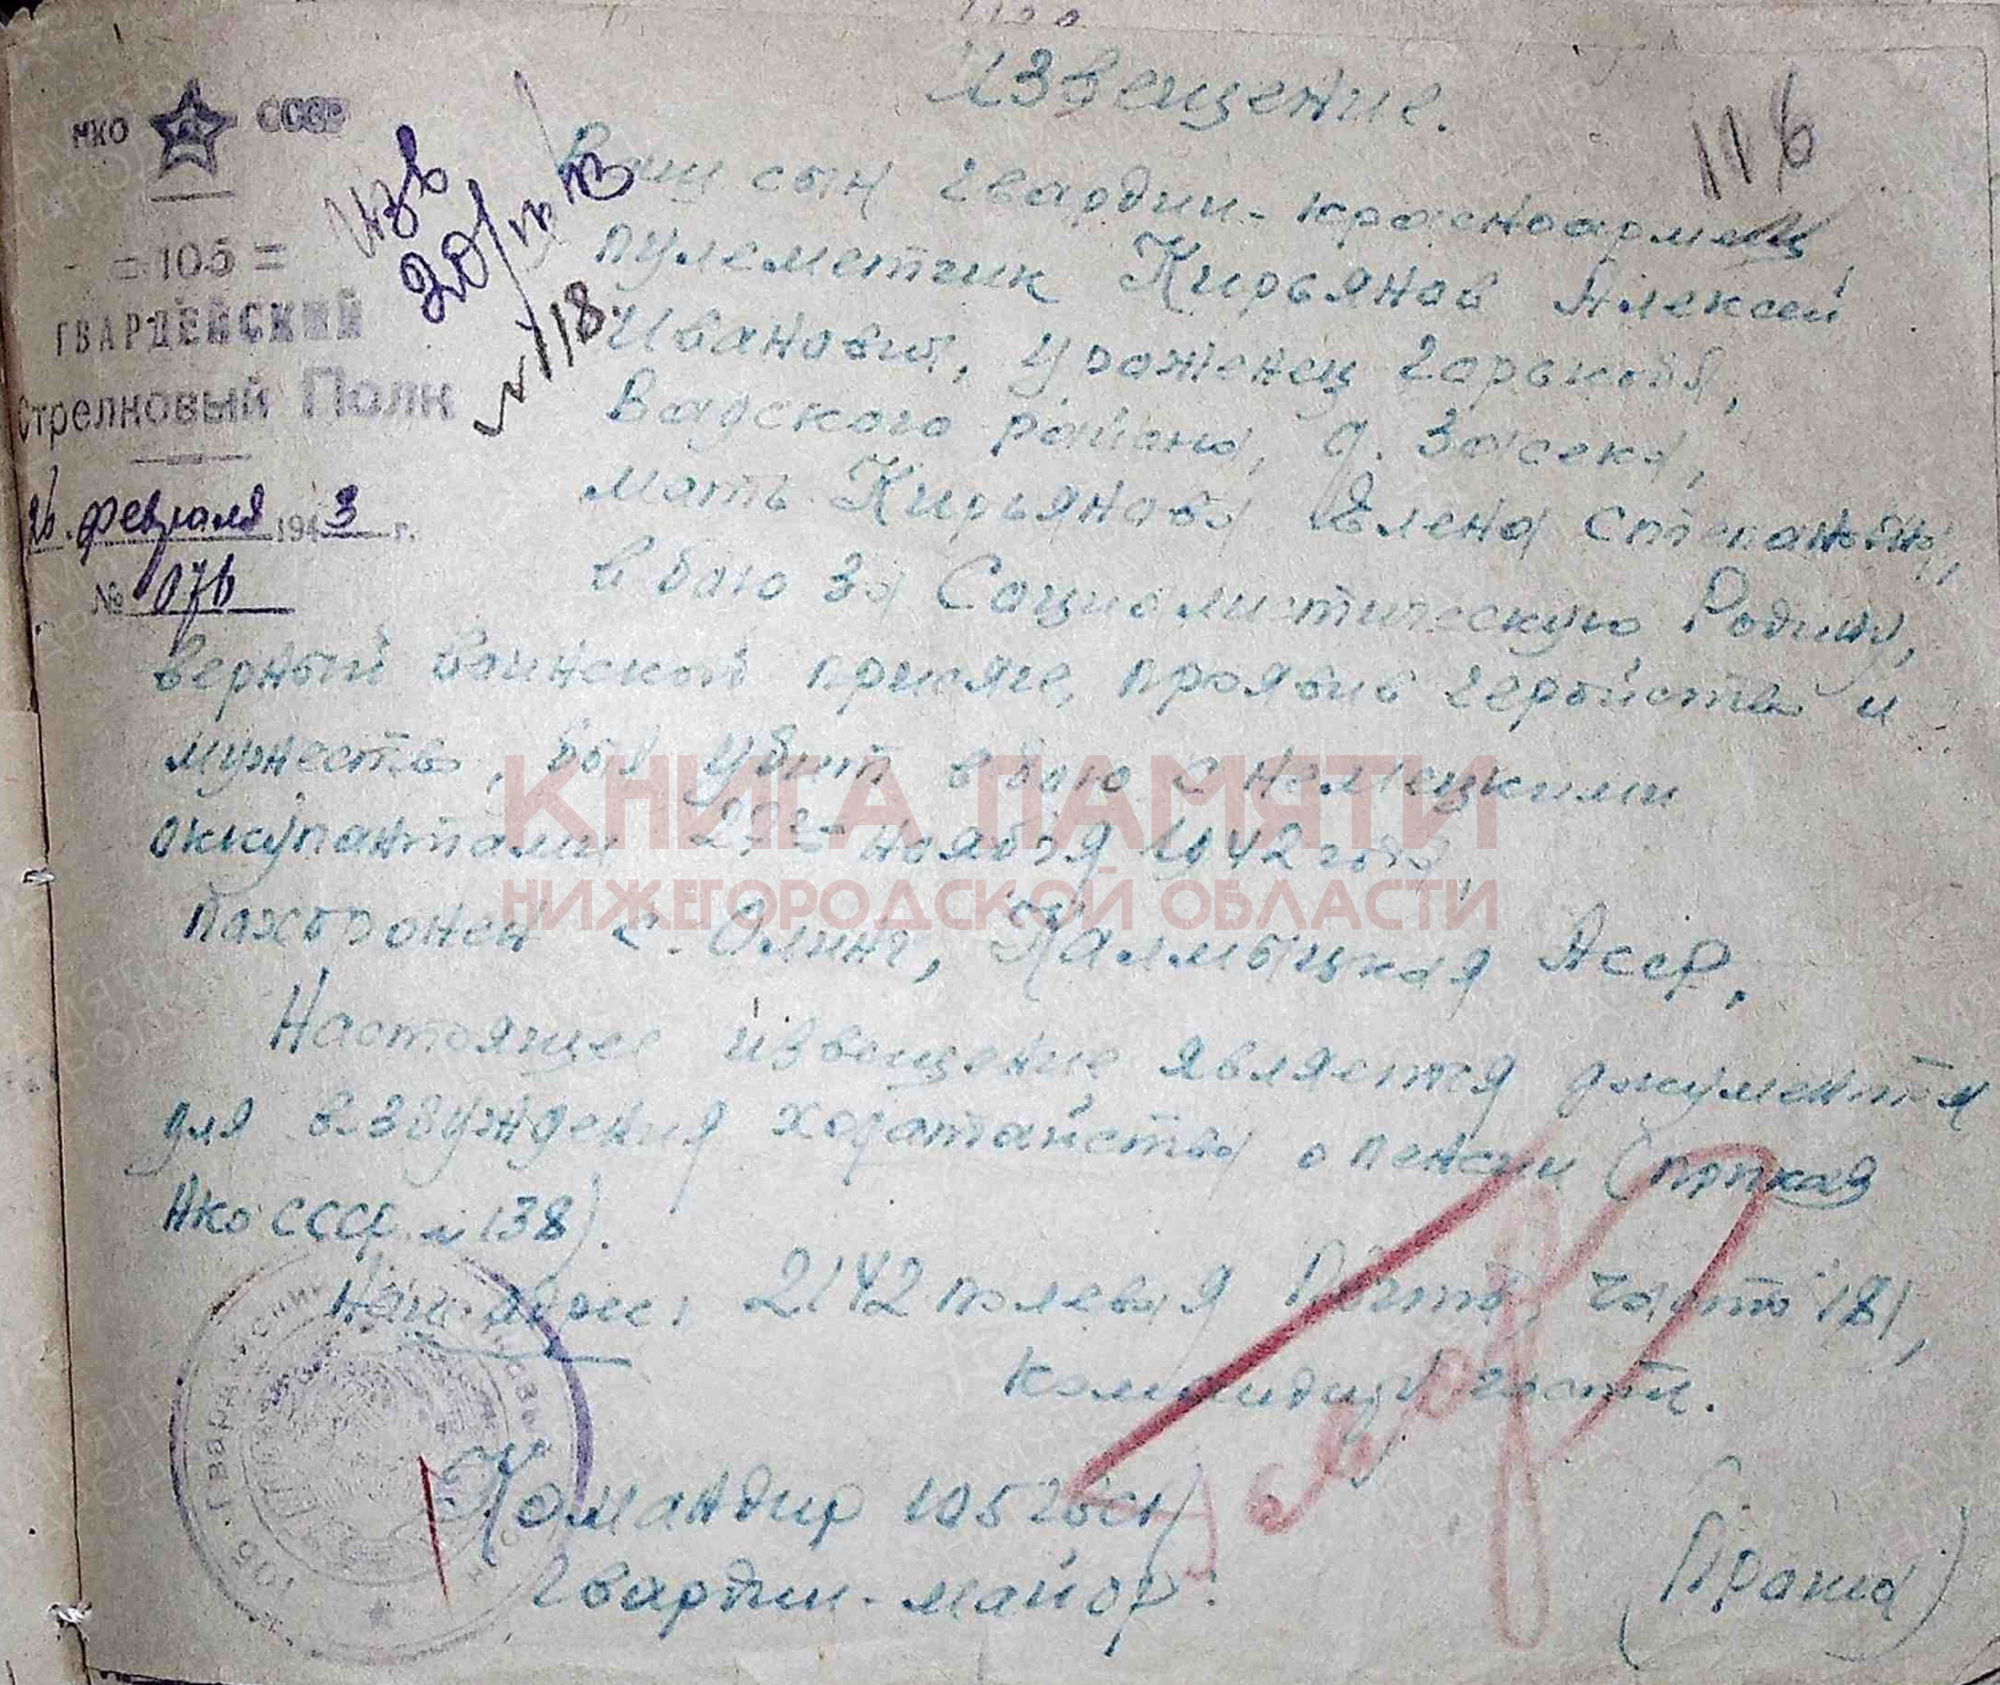 Извещение.
116
НКО СССР
= 105 =
ГВАРДЕЙСКИЙ
Стрелковый Полк
26. февраля 1943 г.
№ 076
Изв
№ 118.
Ваш сын гвардии-красноармеец
пулеметчик Кирьянов Алексей
Иванович, уроженец Горькой,
Вадского района, д. Засека,
мать Кирьянова Елена Степановна,
в бою за Социалистическую Родину,
верный воинской присяге, проявив геройство и
мужество, был убит в бою с немецкими
оккупантами ноября 1942 года,
похоронен с. Олинг, Калмыцкая АССР.
Настоящее извещение является документом
для возбуждения ходатайства о пенсии (приказ
НКО СССР № 138).
Наш адрес: 2142 полевая почта, часть 181,
командиру части.
Командир 105 гвсп
Гвардии-майор:
(Проша)
КНИГА ПАМЯТИ
НИЖЕГОРОДСКОЙ ОБЛАСТИ